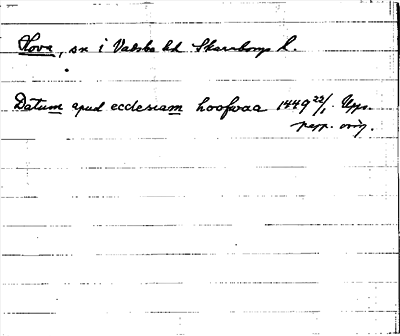 Hova, sn i Vadsbo hd Skaraborgs l.
Datum apud ecclesiam hoofvaa 1449 22/1. Upps.
papp. orig.